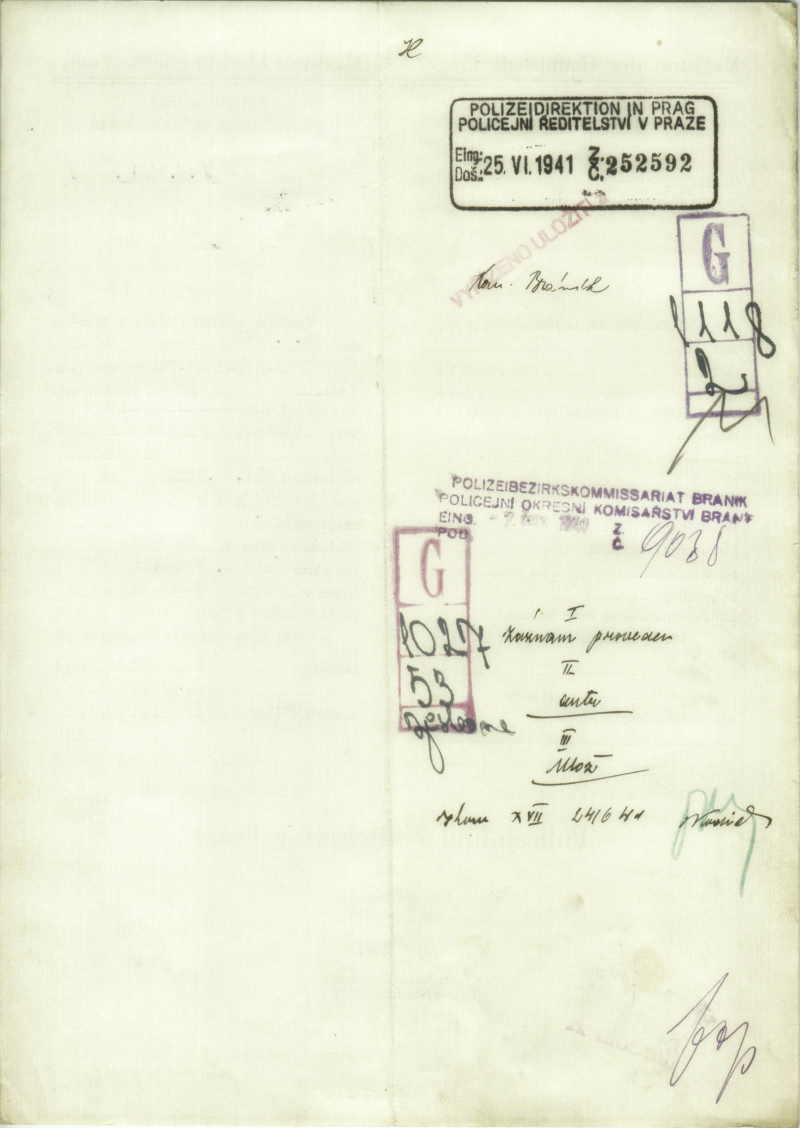 POLIZEIDIREKTION IN PRAG
POLICEJNÍ ŘEDITELSTVÍ V PRAZE
Eing.: 25. VI. 1941 Z. 252592
Doš.: Č.
ULOŽITI
G
Kom. Bráník
1118
2
POLIZEIBEZIRKSKOMMISSARIAT BRANIK
POLICEJNÍ OKRESNÍ KOMISAŘSTVÍ BRANÍK
EING. Z.
POD. Č. 9038
G
1027
53
I
záznam proveden
II
III
Ulož
XVII 24/6 41